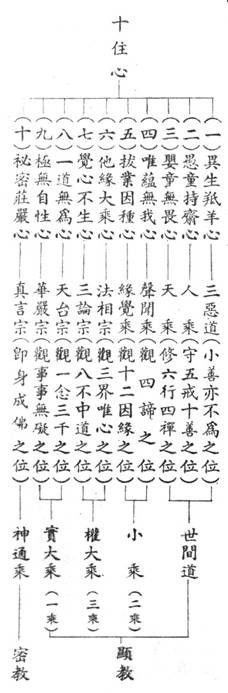 十住心
(一)異生羝羊心 三惡道(小善亦不爲之位)
(二)愚童持齋心 人乘(守五戒十善之位)
(三)嬰童無畏心 天乘(修六行四禪之位)
(四)唯蘊無我心 聲聞乘(觀四諦之位)
(五)拔業因種心 緣覺乘(觀十二因緣之位)
(六)他緣大乘心 法相宗(觀三界唯心之位)
(七)覺心不生心 三論宗(觀八不中道之位)
(八)一道無爲心 天台宗(觀一念三千之位)
(九)極無自性心 華嚴宗(觀事事無礙之位)
(十)祕密莊嚴心 真言宗(即身成佛之位)
世間道
小乘(二乘)
權大乘(三乘)
實大乘(一乘)
神通乘
顯教
密教